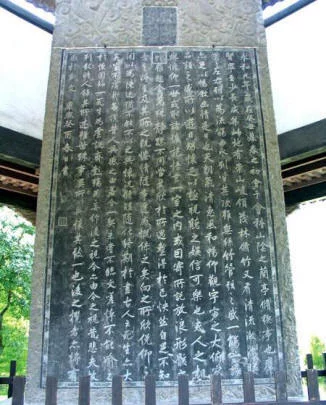 永和九年歲在癸丑暮春之初會于會稽山陰之蘭亭脩稧事也羣
賢畢至少長咸集此地有崇山峻領茂林脩竹又有清流激湍暎
帶左右引以為流觴曲水列坐其次雖無絲竹管弦之盛一觴一詠亦
足以暢敘幽情是日也天朗氣清惠風和暢仰觀宇宙之大俯察
品類之盛所以遊目騁懷足以極視聽之娛信可樂也夫人之相
與俯仰一世或取諸懷抱悟言一室之內或因寄所託放浪形骸之
外雖趣舍萬殊靜躁不同當其欣於所遇蹔得於己快然自足不知
老之將至及其所之既惓情隨事遷感慨係之矣向之所欣俛仰之
間以為陳迹猶不能不以之興懷況脩短隨化終期於盡古人云死生亦大
矣豈不痛哉每攬昔人興感之由若合一契未嘗不臨文嗟悼不能喻之
於懷固知一死生為虛誕齊彭殤為妄作後之視今亦由今之視昔悲夫故
列敘時人錄其所述雖世殊事異所以興懷其致一也後之攬者亦將有感
於斯文